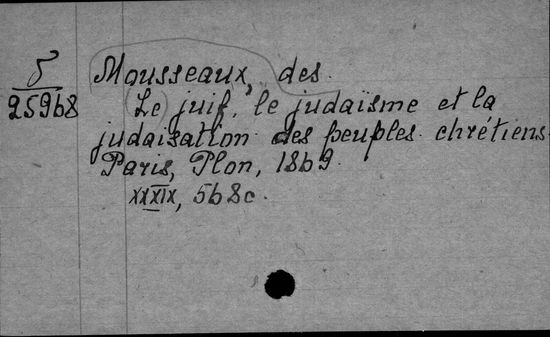 5
25968
Mousseaux, des.
Le juif, le judaïsme et la
judaisation des peuples chrétiens.
Paris, Plon, 1869.
XXXIX, 568c.